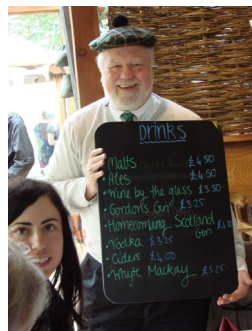 DRINKS
• Malts £4.50
• Ales £4.50
• Wine by the glass £3.50
• Gordons Gin £3.25
• Homecoming Scotland
Gin
• Vodka £3.25
• Ciders £4.00
• Whyte Mackay £3.25